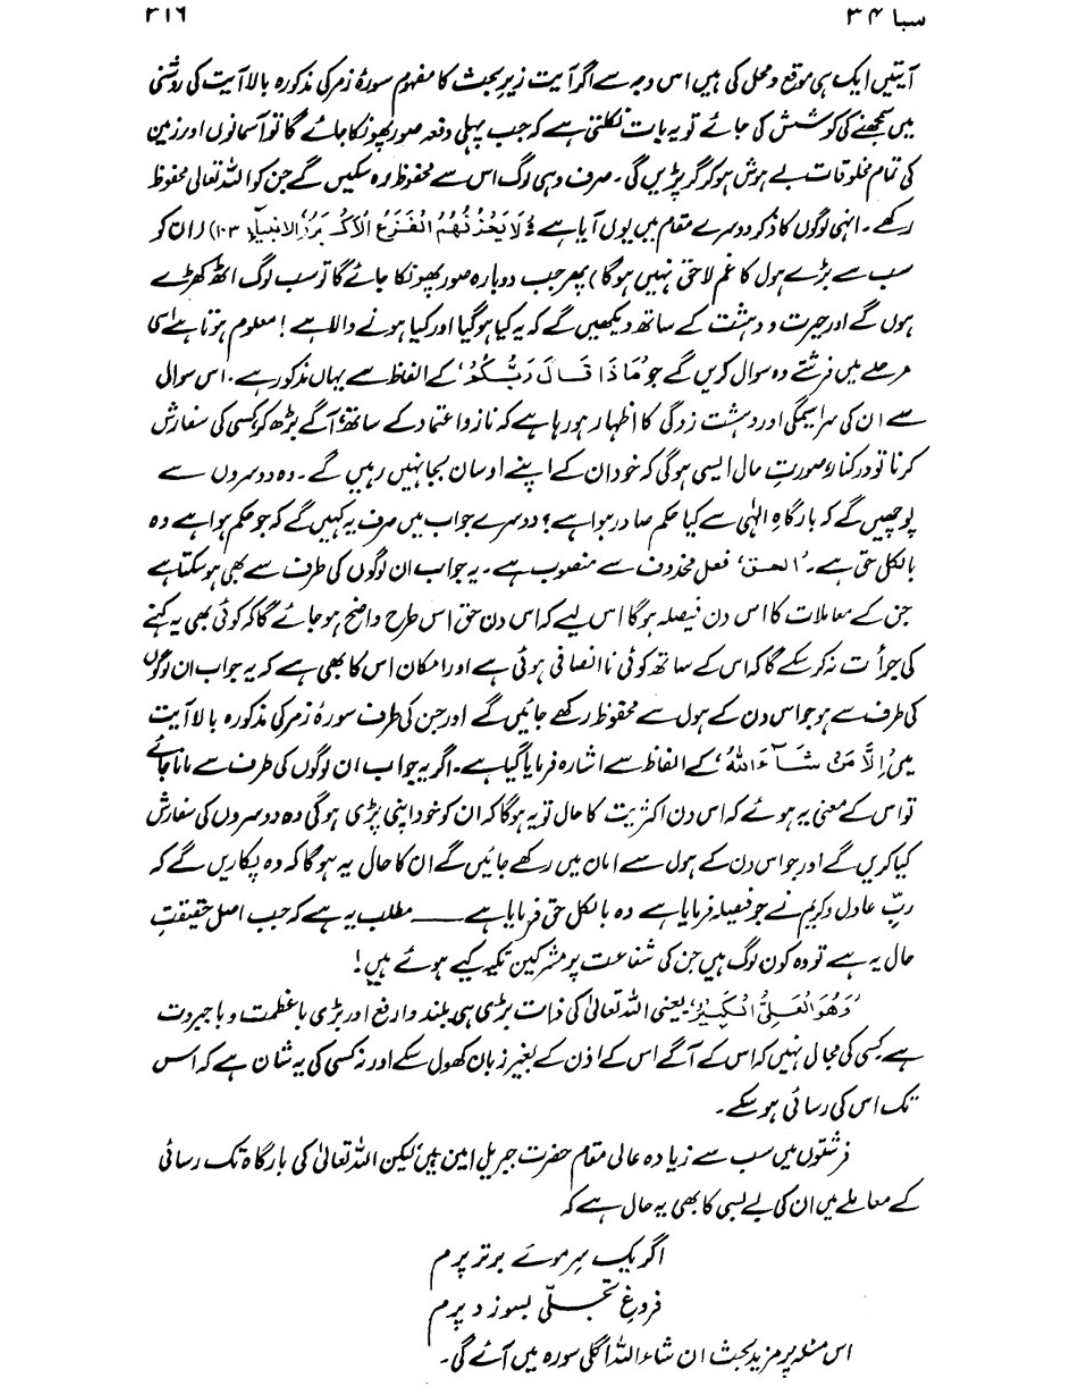 سبا ۳۴ ۳۱۶
آیتیں ایک ہی موقع و محل کی ہیں اس وجہ سے اگر آیت زیرِ بحث کا مفہوم سورۂ زمر کی مذکورہ بالا آیت کی روشنی
میں سمجھنے کی کوشش کی جائے تو یہ بات نکلتی ہے کہ جب پہلی دفعہ صور پھونکا جائے گا تو آسمانوں اور زمین
کی تمام مخلوقات بے ہوش ہو کر گر پڑیں گی۔ صرف وہی لوگ اس سے محفوظ رہ سکیں گے جن کو اللہ تعالیٰ محفوظ
رکھے۔ انہی لوگوں کا ذکر دوسرے مقام میں یوں آیا ہے لَا یَحْزُنُھُمُ الْفَزَعُ الْاَکْبَرُ (الانبیاء ۱۰۳) (ان کو
سب سے بڑے ہول کا غم لاحق نہیں ہوگا) پھر جب دوبارہ صور پھونکا جائے گا تو سب لوگ اٹھ کھڑے
ہوں گے اور حیرت و دہشت کے ساتھ دیکھیں گے کہ یہ کیا ہو گیا اور کیا ہونے والا ہے! معلوم ہوتا ہے اسی
مرحلے میں فرشتے وہ سوال کریں گے جو ’مَاذَا قَالَ رَبُّکُمْ‘ کے الفاظ سے یہاں مذکور ہے۔ اس سوال ہی
سے ان کی سراسیمگی اور دہشت زدگی کا اظہار ہو رہا ہے کہ ناز و اعتماد کے ساتھ، آگے بڑھ کر، کسی کی سفارش
کرنا تو درکنار، صورتِ حال ایسی ہوگی کہ خود ان کے اپنے اوسان بجا نہیں رہیں گے۔ وہ دوسروں سے
پوچھیں گے کہ بارگاہِ الٰہی سے کیا حکم صادر ہوا ہے؟ دوسرے جواب میں صرف یہ کہیں گے کہ جو حکم ہوا ہے وہ
بالکل حق ہے۔ ’الحق‘ فعل محذوف سے منصوب ہے۔ یہ جواب ان لوگوں کی طرف سے بھی ہو سکتا ہے
جن کے معاملات کا اس دن فیصلہ ہوگا اس لیے کہ اس دن حق اس طرح واضح ہو جائے گا کہ کوئی بھی یہ کہنے
کی جرأت نہ کر سکے گا کہ اس کے ساتھ کوئی ناانصافی ہوئی ہے اور امکان اس کا بھی ہے کہ یہ جواب ان لوگوں
کی طرف سے ہو جو اس دن کے ہول سے محفوظ رکھے جائیں گے اور جن کی طرف سورۂ زمر کی مذکورہ بالا آیت
میں ’اِلَّا مَنْ شَآءَ اللہُ‘ کے الفاظ سے اشارہ فرمایا گیا ہے۔ اگر یہ جواب ان لوگوں کی طرف سے مانا جائے
تو اس کے معنی یہ ہوئے کہ اس دن اکثریت کا حال تو یہ ہوگا کہ ان کو خود اپنی پڑی ہوگی وہ دوسروں کی سفارش
کیا کریں گے اور جو اس دن کے ہول سے امان میں رکھے جائیں گے ان کا حال یہ ہوگا کہ وہ پکاریں گے کہ
ربِّ عادل و کریم نے جو فیصلہ فرمایا ہے وہ بالکل حق فرمایا ہے —— مطلب یہ ہے کہ جب اصل حقیقتِ
حال یہ ہے تو وہ کون لوگ ہیں جن کی شفاعت پر مشرکین تکیہ کیے ہوئے ہیں!
’وَھُوَ الْعَلِیُّ الْکَبِیْرُ‘ یعنی اللہ تعالیٰ کی ذات بڑی ہی بلند و ارفع اور بڑی باعظمت و باجبروت
ہے کسی کی مجال نہیں کہ اس کے آگے اس کے اذن کے بغیر زبان کھول سکے اور نہ کسی کی یہ شان ہے کہ اس
تک اس کی رسائی ہو سکے۔
فرشتوں میں سب سے زیادہ عالی مقام حضرت جبریل امین ہیں، لیکن اللہ تعالیٰ کی بارگاہ تک رسائی
کے معاملے میں ان کی بے بسی کا بھی یہ حال ہے کہ
اگر یک سرِ موئے برتر پرم
فروغِ تجلّی بسوزد پرم
اس مسئلہ پر مزید بحث ان شاء اللہ اگلی سورہ میں آئے گی۔